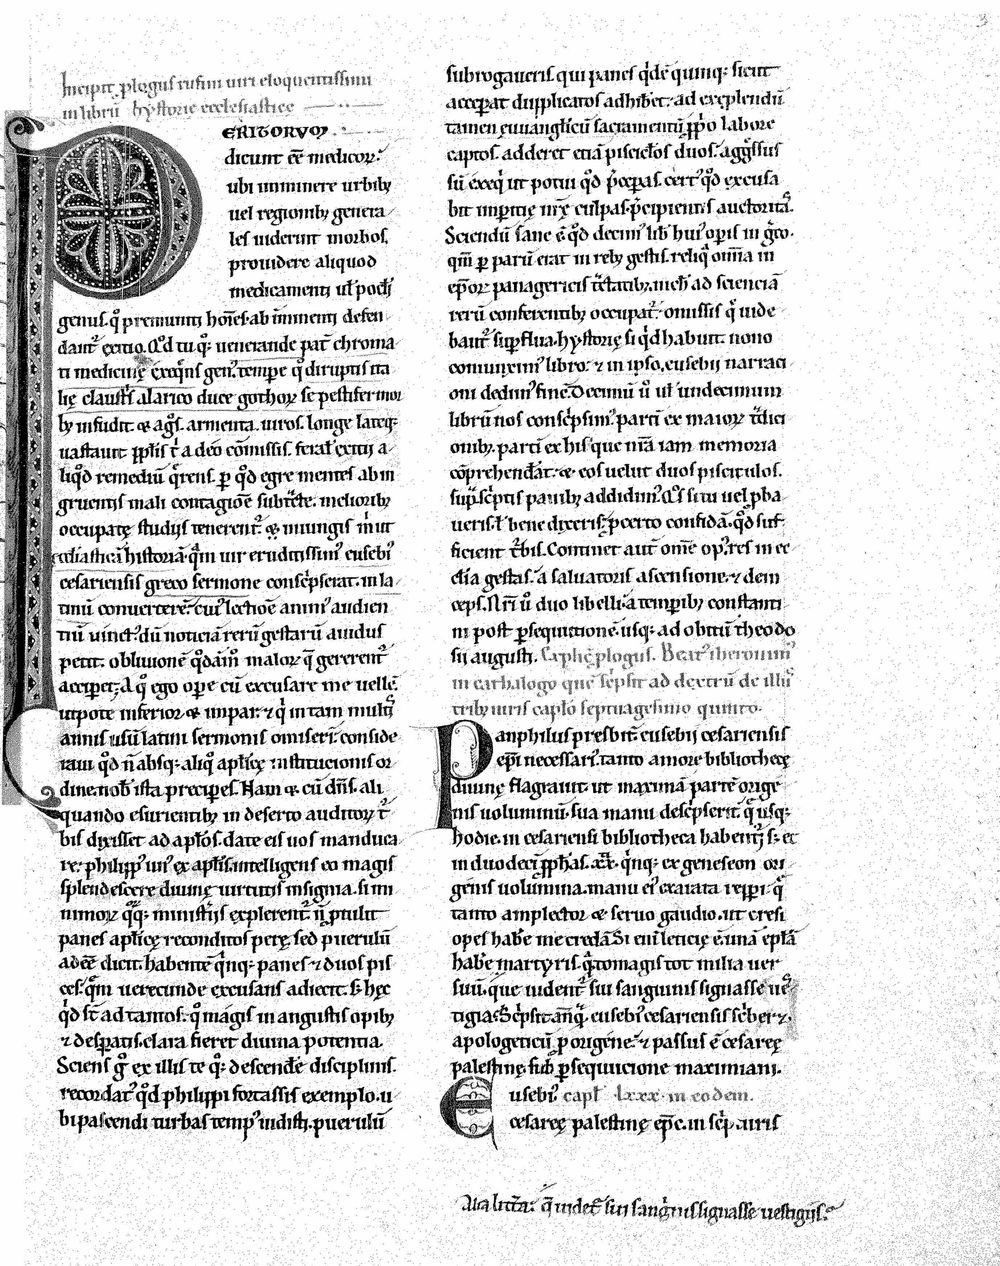 Incipit plogus rufini uiri eloquentissimi
in librū hystorie ecclesiastice
PERITORVM
dicunt eē medicoꝝ.
ubi imminere urbibꝰ
uel regionibꝰ genera
les uiderint morbos,
prouidere aliquod
medicamenti ul poculi
genus. qͦ premuniti hoīes ab īminenti defen
dantᷣ exitio. Qd tu qꝫ uenerande patᷣ chroma
ti medicinę exeqnſ genꝰ. tempore qͦ diruptis ita
lię claustris alarico duce gothoꝝ se pestifer mor
bꝰ infudit. & agros. armenta. uiros. longe lateqꝫ
uastauit. pplis t a deo cōmissis. feral exitii a
liqd remediū qrens. ꝑ qd egre mentes ab in
gruentis mali contagiōe subtcte. melioribꝰ
occupatę studiis tenerentᷣ. & iniungis m ut
ecclesiasticā historiā. quā uir eruditissimꝰ eusebiꝰ
cesariensis greco sermone conscpserat. in la
tinū conuerterē. cuiꝰ lectiōe animꝰ audien
tiū uinctꝰ. dū noticiā rerū gestarū auidus
petit. obliuionē qdāmͦ maloꝝ q̄ gererentᷣ
acciperet. A qͦ ego oꝑe cū excusare me uellē.
utpote inferior & impar. ⁊ q in tam multis
annis usū latini sermonis omiserī. conside
raui qd n̄ absqꝫ aliqͦ aplicę institucionis or
dine nob ista preciꝑes. Nam & cū dn̄s. ali
quando esurientibꝰ in deserto auditoribꝰ
bis dixisset ad aplos. date eis uos manduca
re. philippꝰ unꝰ ex aplis. intelligens eo magis
splendescere diuinę uirtutis insignia. si mi
nimoꝝ qͦꝫ ministeriis explerentᷣ. n̄ ꝓtulit
panes aplicę reconditos perę. sed puerulū
adeē dicit. habentē qnqꝫ panes ⁊ duos pis
ces. q̄m uerecunde excusans adiecit. s; hęc
qd st ad tantos. qͦ magis in angustis opibꝰ
⁊ despatis. clara fieret diuina potentia.
Sciens gͦ ex illis te qꝫ descendē disciplinis.
recordatꝰ qd philippi fortassis exemplo. u
bi pascendi turbas tempꝰ uidisti. puerulū
subrogaueris. qui panes qdē quinqꝫ sicut
acceꝑat duplicatos adhibet. ad explendū
tamen euuanglicū sacramentū ꝓpͦo labore
captos. adderet etiā pisciclos duos. aggressus
sū exeq ut potui qd pceꝑas. certꝰ qd excusa
bit imperitię nrę culpas. pcipientis auctoritas.
Sciendū sane ē qd decimꝰ libꝰ huiꝰ oꝑis in gco.
qm̄ ꝑ parū erat in rebꝰ gestis. reliq omīa in
ep̄oꝝ panagericis tctatibꝰ. nichil ad scienciā
rerū conferentibꝰ occupatᷣ. omissis q uide
bantᷣ suꝑflua. hystorię si qd habuit. nono
coniunximꝰ libro. ⁊ in ipso. eusebii narrati
oni dedimꝰ finē. Decimū u ul undecimum
librū nos conscpsimꝰ. partī ex maioꝝ tdici
onibꝰ. partī ex his que nrā iam memoria
cōprehendat. & eos uelut duos pisciculos.
supͣscptis panibꝰ addidimꝰ. Qs si tu uel ꝓba
ueris. l bene dixeris. ꝓcerto confidā. qd suf
ficient tbis. Continet aut omē opꝰ. res in ec
clia gestas. a saluatoris ascensione. ⁊ dein
ceps. Nri u duo libelli. a temporibꝰ constanti
ni post ꝑsequutionē. usqꝫ ad obitū theodo
sii augusti. Explic plogus. Beatꝰ iheronimꝰ
in cathalogo quē scpsit ad dextrū de illꝰ
tribꝰ uiris capło septuagesimo quinto.
Panphilus presbitᷣ. eusebii cesariensis
ep̄i necessariꝰ. tanto amore bibliothecę
diuinę flagrauit. ut maximā partē orige
nis uoluminū. sua manu descpserit. q usqꝫ
hodie. in cesariensi bibliotheca habentᷣ. s; et
in duodecī ꝓphas. xx. qnqꝫ ex geneseon ori
genis uolumina. manu eiꝰ exarata reppi. q
tanto amplector & seruo gaudio. ut cresi
opes habē me credā. Si enī leticię ē unā eplā
habē martyris. qͣntomagis tot milia uer
suū. que uidentᷣ sui sanguinis signasse ue
tigia. Scpsit anq̄. eusebiꝰ cesariensis scbet ⁊.
apologeticū ꝓ origene. ⁊ passus ē cesareę
palestinę. sub ꝑsequicione maximiani.
Eusebiꝰ. capł lxxx. in eodem.
cesareę palestinę ep̄c. in scp uiris
Alia littra. q uidetᷣ sui sanginis signasse uestigiis.